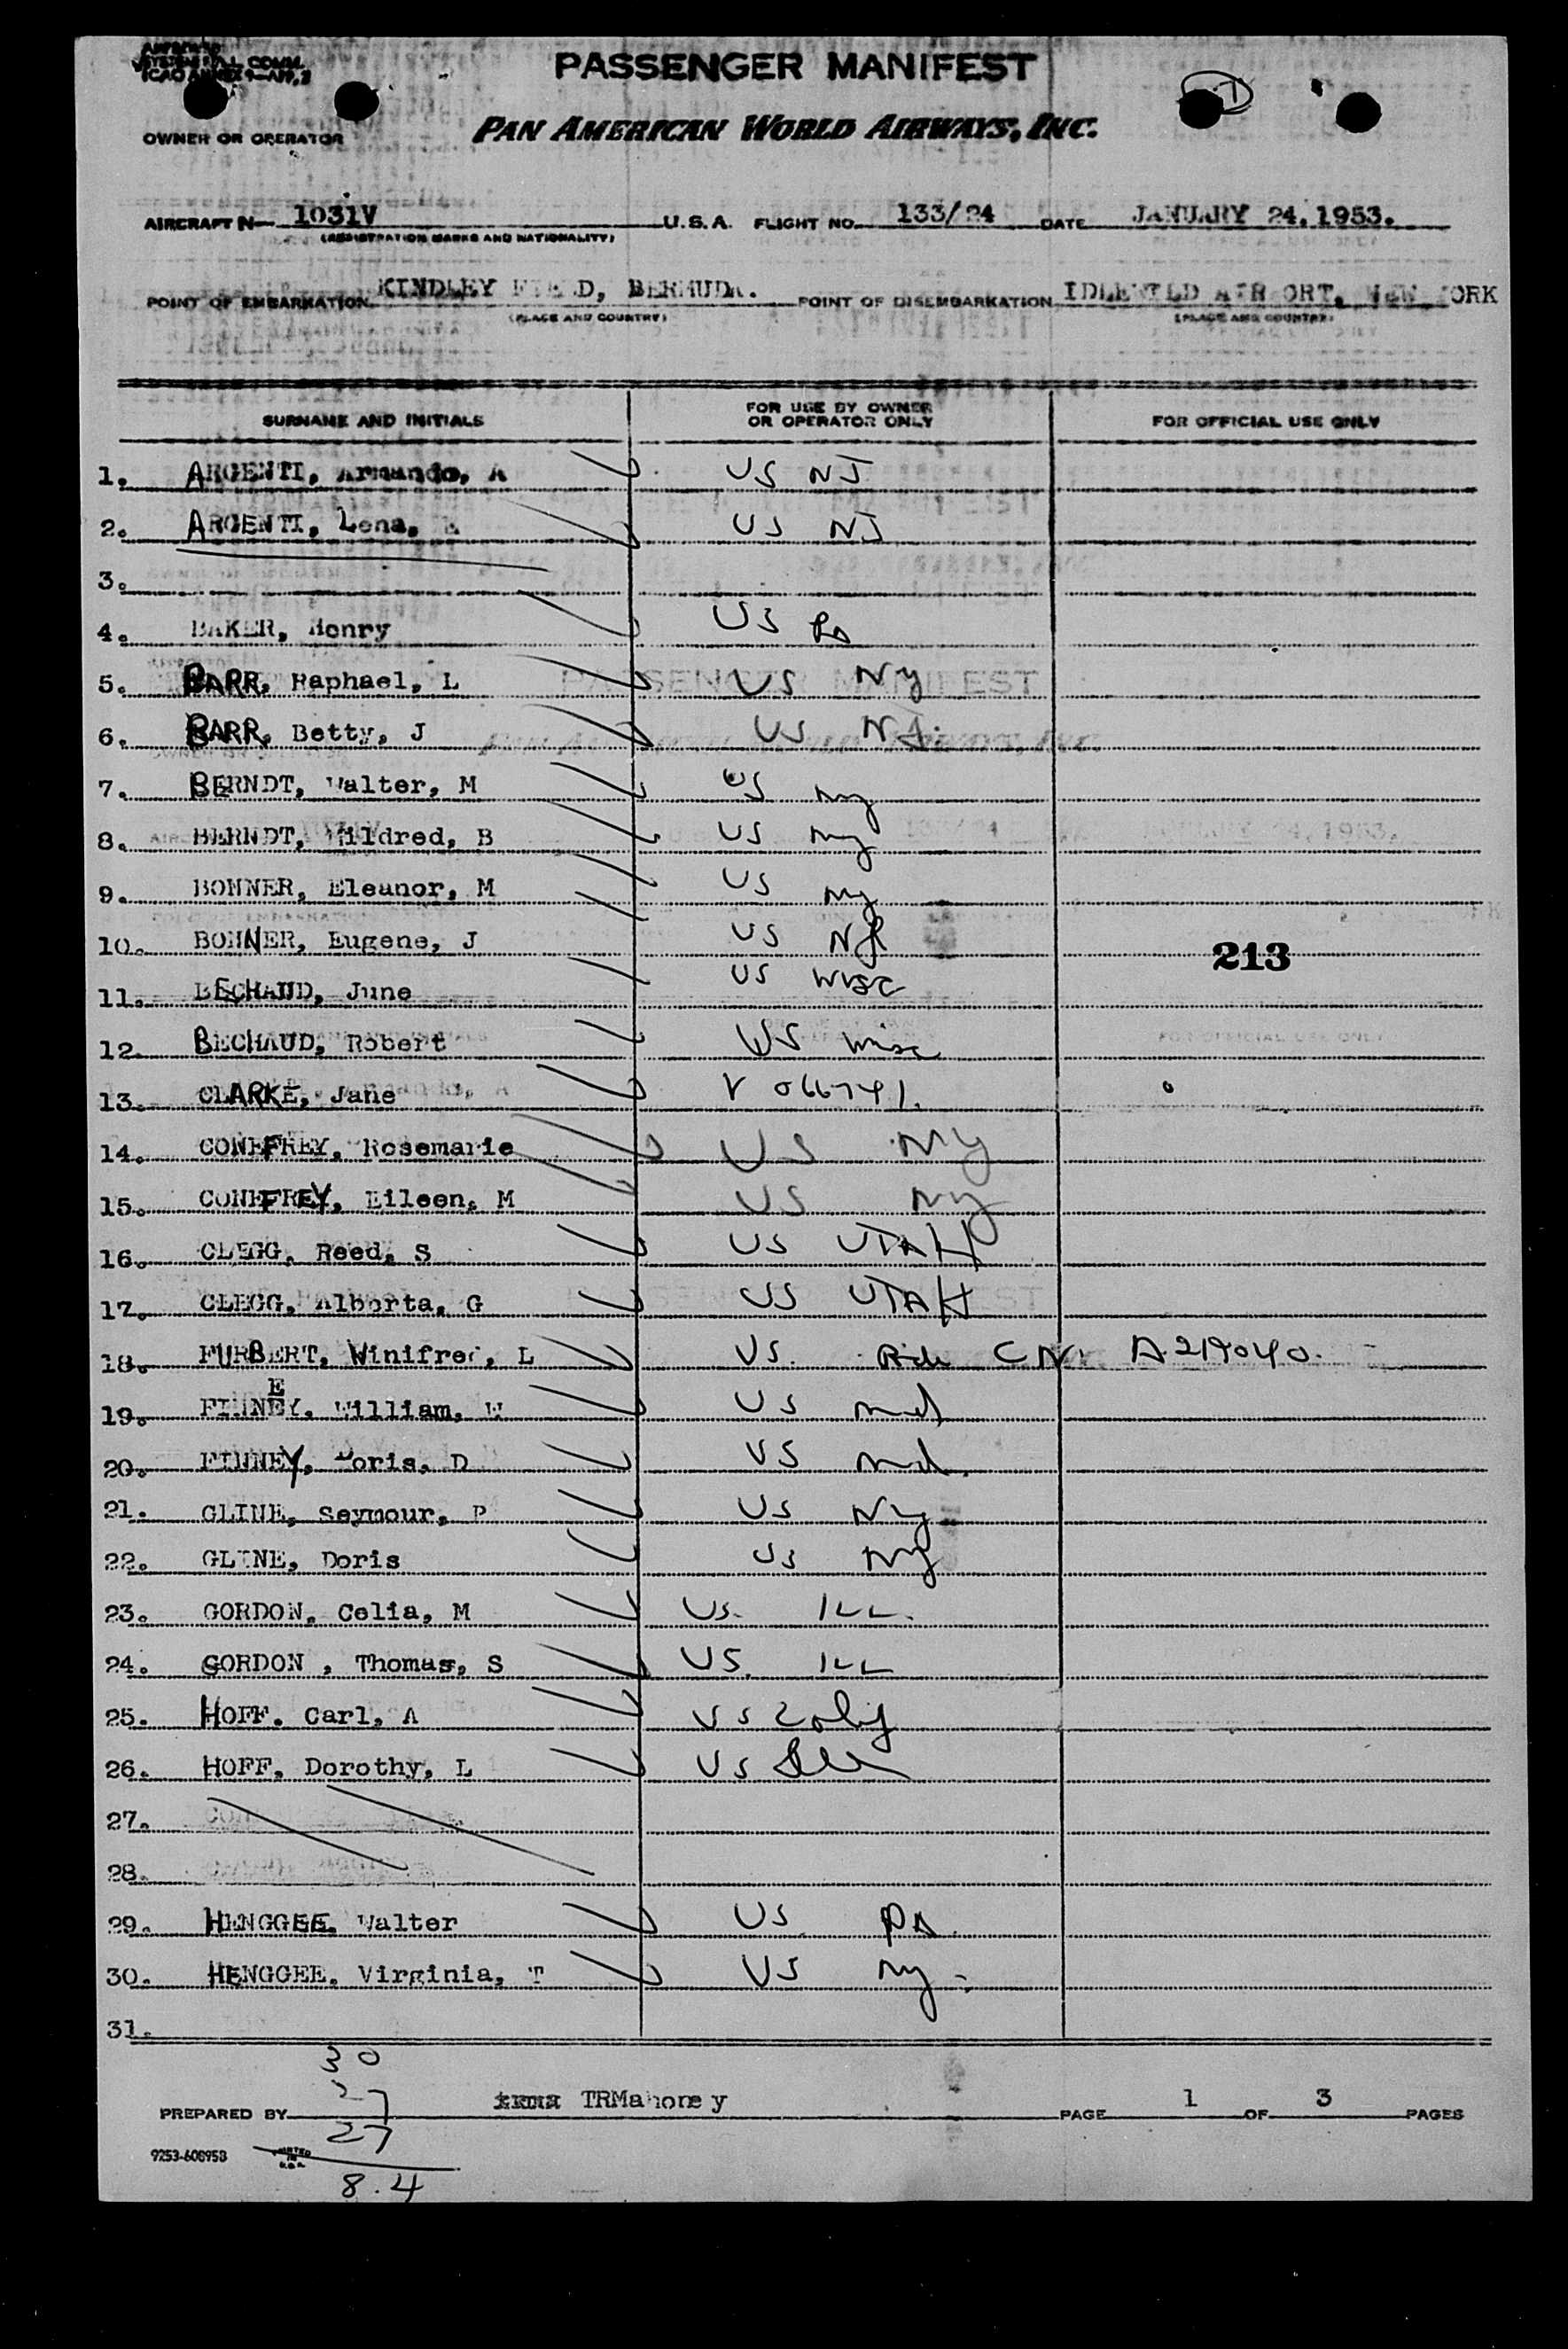 PASSENGER MANIFEST
ICAO ANNEX 9—APP. 3
OWNER OR OPERATOR PAN AMERICAN WORLD AIRWAYS, INC.
AIRCRAFT N— 1031V U.S.A. FLIGHT NO. 133/24 DATE JANUARY 24, 1953.
(REGISTRATION MARKS AND NATIONALITY)
POINT OF EMBARKATION KINDLEY FIELD, BERMUDA. POINT OF DISEMBARKATION IDLEWILD AIRPORT, NEW YORK
(PLACE AND COUNTRY) (PLACE AND COUNTRY)
SURNAME AND INITIALS FOR USE BY OWNER OR OPERATOR ONLY FOR OFFICIAL USE ONLY
1. ARGENTI, Armando, A US NJ
2. ARGENTI, Lena, US NJ
3.
4. BAKER, Henry US Pa
5. BARR, Raphael, L US Ny
6. BARR, Betty, J US
7. BERNDT, Walter, M US ny
8. BERNDT, Mildred, B US ny
9. BONNER, Eleanor, M US ny
10. BONNER, Eugene, J US
11. BECHAUD, June US WISC
12. BECHAUD, Robert US Wisc
13. CLARKE, Jane V 066741.
14. CONEFREY, Rosemarie US Ny
15. CONEFREY, Eileen, M US Ny
16. CLEGG, Reed, S US UTAH
17. CLEGG, Alberta, G US UTAH
213
18. FURBERT, Winifred, L US. CN.
19. FINNEY, William, W US md
E
20. FINNEY, Doris, D US md.
21. GLINE, Seymour, P US Ny
22. GLINE, Doris US Ny
23. GORDON, Celia, M US. ILL.
24. GORDON , Thomas, S US. ILL
25. HOFF. Carl, A US
26. HOFF, Dorothy, L US
27.
28.
29. HENGGEE. Walter US PA.
30. HENGGEE. Virginia, T US Ny.
31.
30
27
PREPARED BY TRMahoney PAGE 1 OF 3 PAGES
27
9253-608958 PRINTED IN U.S.A.
8.4